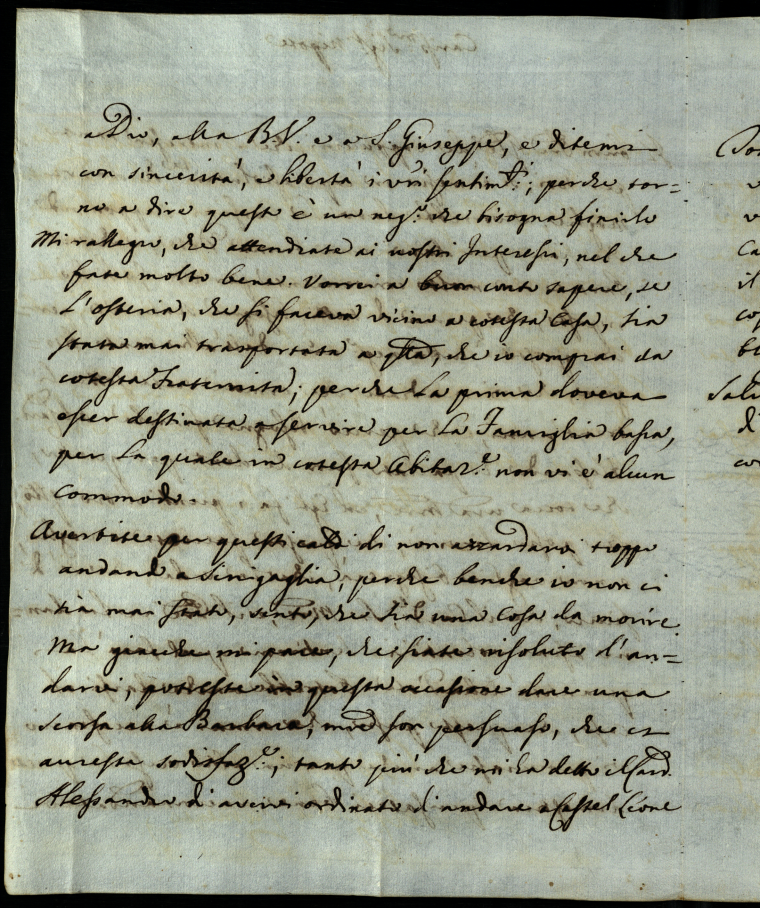 a Dio, alla B. V. e a S. Giuseppe, e ditemi
con sincerità, e libertà i vri sentim.ti; perche tor=
no a dire questo è un neg.o che bisogna finirlo
Mi rallegro, che attendiate ai vostri Interessi, nel che
fate molto bene. Vorrei a buon conto sapere, se
L'osteria, che si faceva vicino a cotesta Casa, sia
stata mai trasportata a qlla, che io comprai da
cotesta Fraternità; perche La prima doveva
esser destinata a servire per La Famiglia bassa,
per La quale in cotesta Abitaz.e non vi è alcun
commodo.
Avertite per questi caldi di non azzardarvi troppo
andando a Sinigaglia, perche benche io non ci
sia mai stato, sento, che sia una Cosa da morire
Ma gia che mi pare, che siate risoluto d'an=
darvi, potreste in questa occasione dare una
scorsa alla Barbara, son persuaso, che ci
avreste sodisfaz.e; tanto più che mi ha detto il Card.
Alessandro di avervi ordinato d'andare a Castel Leone